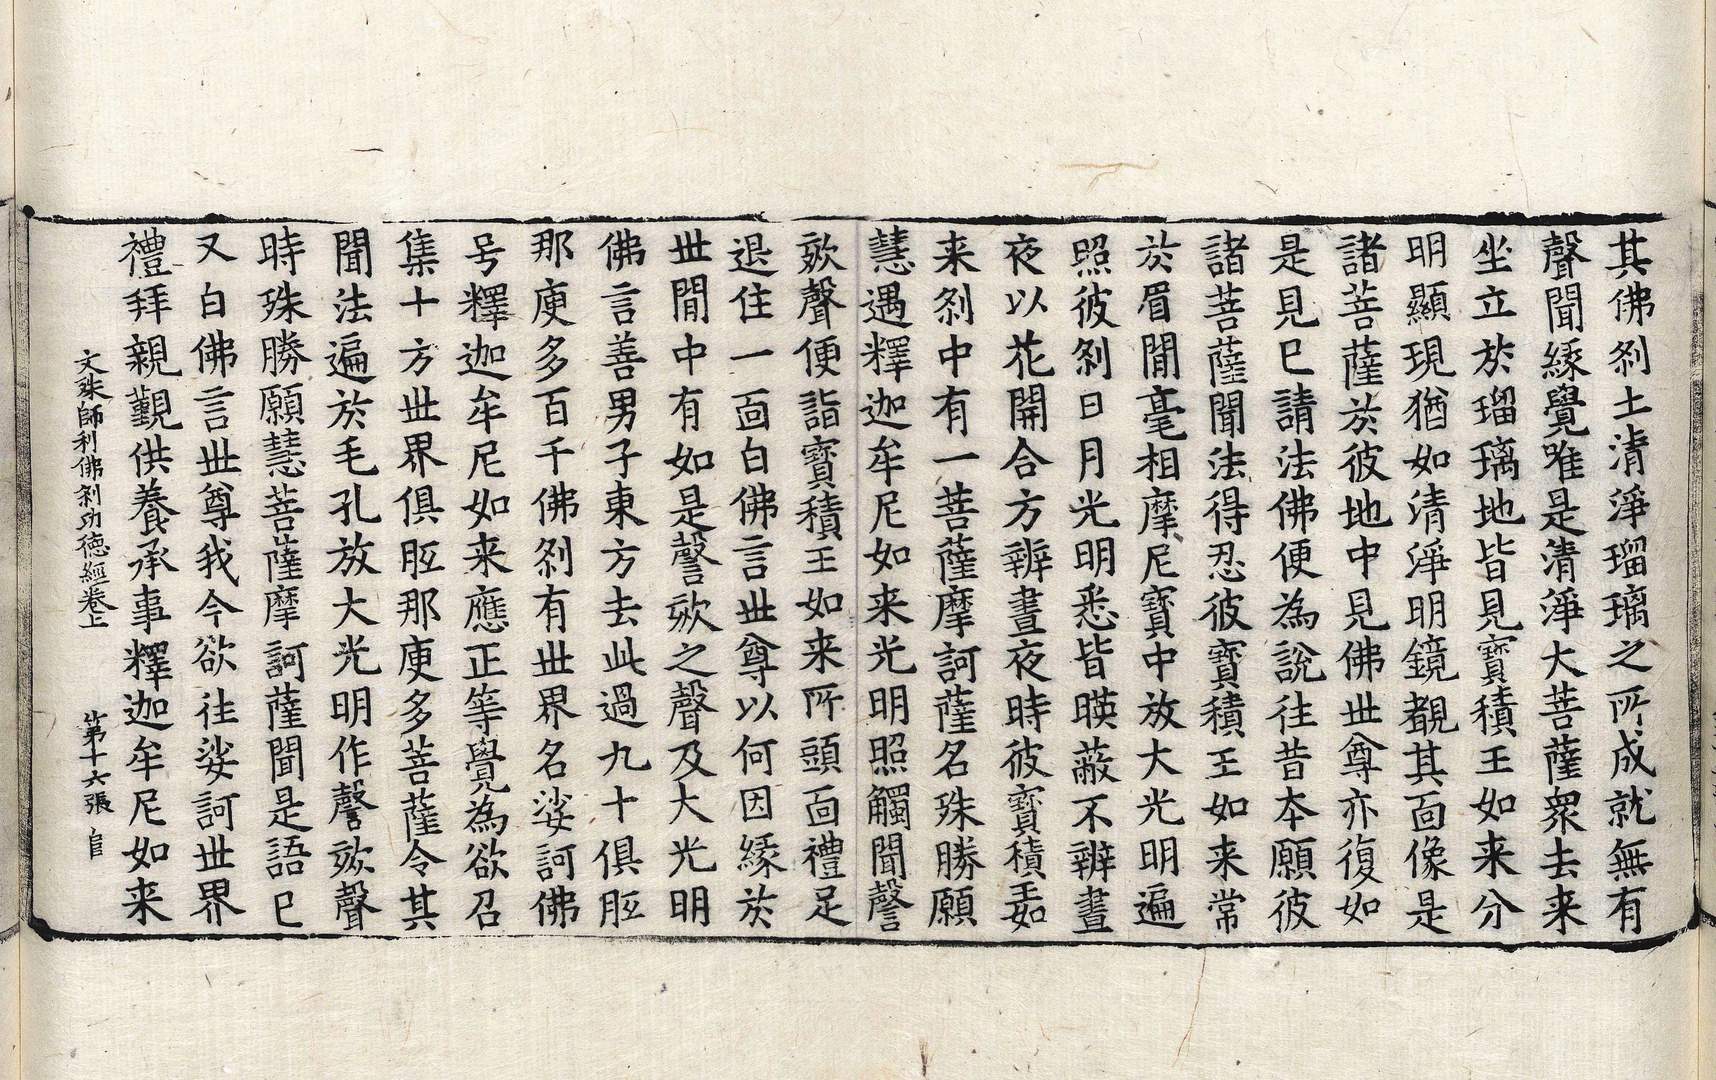 其佛刹土清淨瑠璃之所成就無有
聲聞緣覺唯是清淨大菩薩衆去来
坐立於瑠璃地皆見寶積王如来分
明顯現猶如清淨明鏡覩其面像是
諸菩薩於彼地中見佛世尊亦復如
是見已請法佛便為說往昔本願彼
諸菩薩聞法得忍彼寶積王如来常
於眉間毫相摩尼寶中放大光明遍
照彼刹日月光明悉皆暎蔽不辨晝
夜以花開合方辨晝夜時彼寶積王如
来刹中有一菩薩摩訶薩名殊勝願
慧遇釋迦牟尼如来光明照觸聞謦
欬聲便詣寶積王如来所頭面禮足
退住一面白佛言世尊以何因緣於
世間中有如是謦欬之聲及大光明
佛言善男子東方去此過九十俱胝
那庾多百千佛刹有世界名娑訶佛
号釋迦牟尼如来應正等覺為欲召
集十方世界俱胝那庾多菩薩令其
聞法遍於毛孔放大光明作謦欬聲
時殊勝願慧菩薩摩訶薩聞是語已
又白佛言世尊我今欲往娑訶世界
禮拜親覲供養承事釋迦牟尼如来
文殊師利佛刹功德經卷上　第十六張